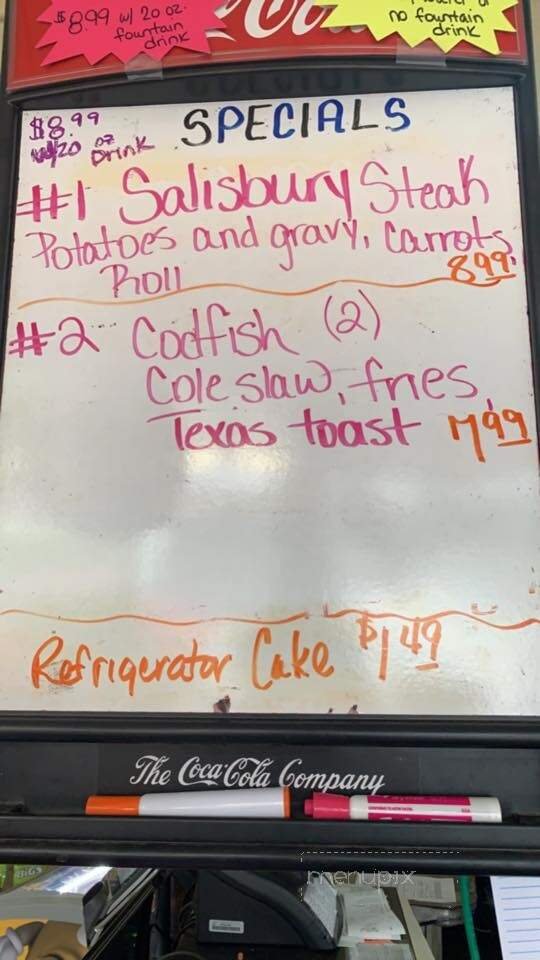 $8.99 w/ 20 oz.
fountain
drink
no fountain
drink
$8.99
w/20 oz Drink
SPECIALS
#1 Salisbury Steak
Potatoes and gravy, Carrots,
Roll 8.99
#2 Codfish (2)
Coleslaw, fries,
Texas toast 7.99
Refrigerator Cake $1.49
The Coca-Cola Company
menupix